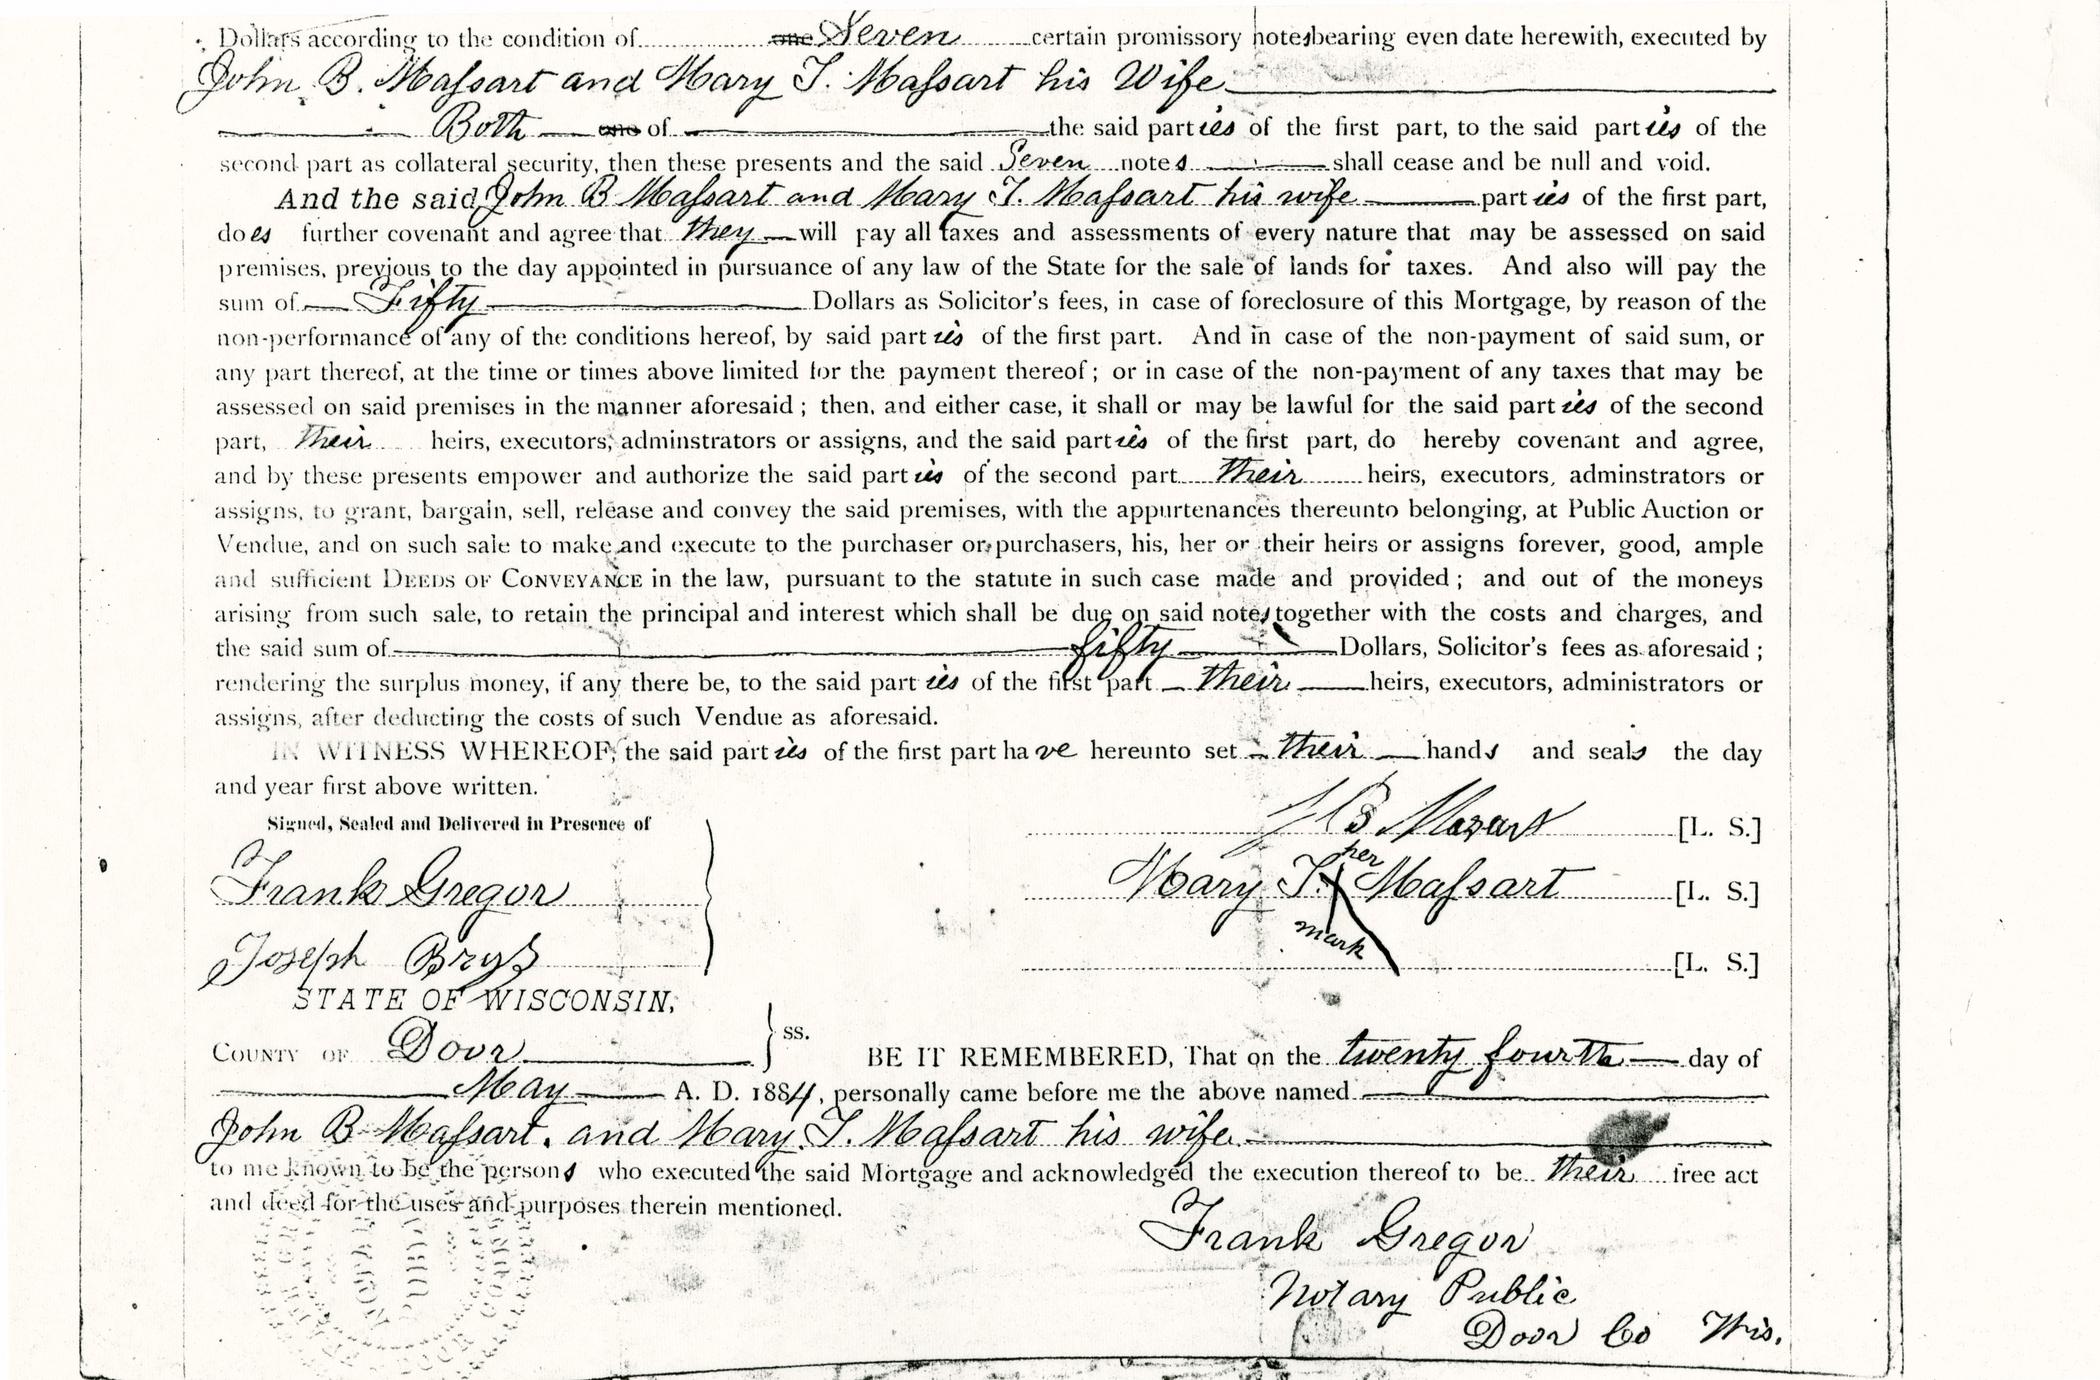 Dollars according to the condition of one Seven certain promissory notes bearing even date herewith, executed by
John B. Maſsart and Mary T. Maſsart his Wife
Both one of the said parties of the first part, to the said parties of the
second part as collateral security, then these presents and the said Seven notes shall cease and be null and void.
And the said John B Maſsart and Mary T. Maſsart his wife parties of the first part,
does further covenant and agree that they will pay all taxes and assessments of every nature that may be assessed on said
premises, previous to the day appointed in pursuance of any law of the State for the sale of lands for taxes. And also will pay the
sum of Fifty Dollars as Solicitor's fees, in case of foreclosure of this Mortgage, by reason of the
non-performance of any of the conditions hereof, by said parties of the first part. And in case of the non-payment of said sum, or
any part thereof, at the time or times above limited for the payment thereof; or in case of the non-payment of any taxes that may be
assessed on said premises in the manner aforesaid; then, and either case, it shall or may be lawful for the said parties of the second
part, their heirs, executors, adminstrators or assigns, and the said parties of the first part, do hereby covenant and agree,
and by these presents empower and authorize the said parties of the second part their heirs, executors, adminstrators or
assigns, to grant, bargain, sell, release and convey the said premises, with the appurtenances thereunto belonging, at Public Auction or
Vendue, and on such sale to make and execute to the purchaser or purchasers, his, her or their heirs or assigns forever, good, ample
and sufficient DEEDS OF CONVEYANCE in the law, pursuant to the statute in such case made and provided; and out of the moneys
arising from such sale, to retain the principal and interest which shall be due on said notes together with the costs and charges, and
the said sum of fifty Dollars, Solicitor's fees as aforesaid;
rendering the surplus money, if any there be, to the said parties of the first part their heirs, executors, administrators or
assigns, after deducting the costs of such Vendue as aforesaid.
IN WITNESS WHEREOF, the said parties of the first part have hereunto set their hands and seals the day
and year first above written.
Signed, Sealed and Delivered in Presence of
J B Mazart [L. S.]
her
Frank Gregor
Mary T. X Maſsart [L. S.]
mark
Joseph Brys
[L. S.]
STATE OF WISCONSIN,
ss.
COUNTY OF Door
BE IT REMEMBERED, That on the twenty fourth day of
May A. D. 1884, personally came before me the above named
John B Maſsart. and Mary T. Maſsart his wife
to me known to be the persons who executed the said Mortgage and acknowledged the execution thereof to be their free act
and deed for the uses and purposes therein mentioned.
Frank Gregor
Notary Public
Door Co Wis.